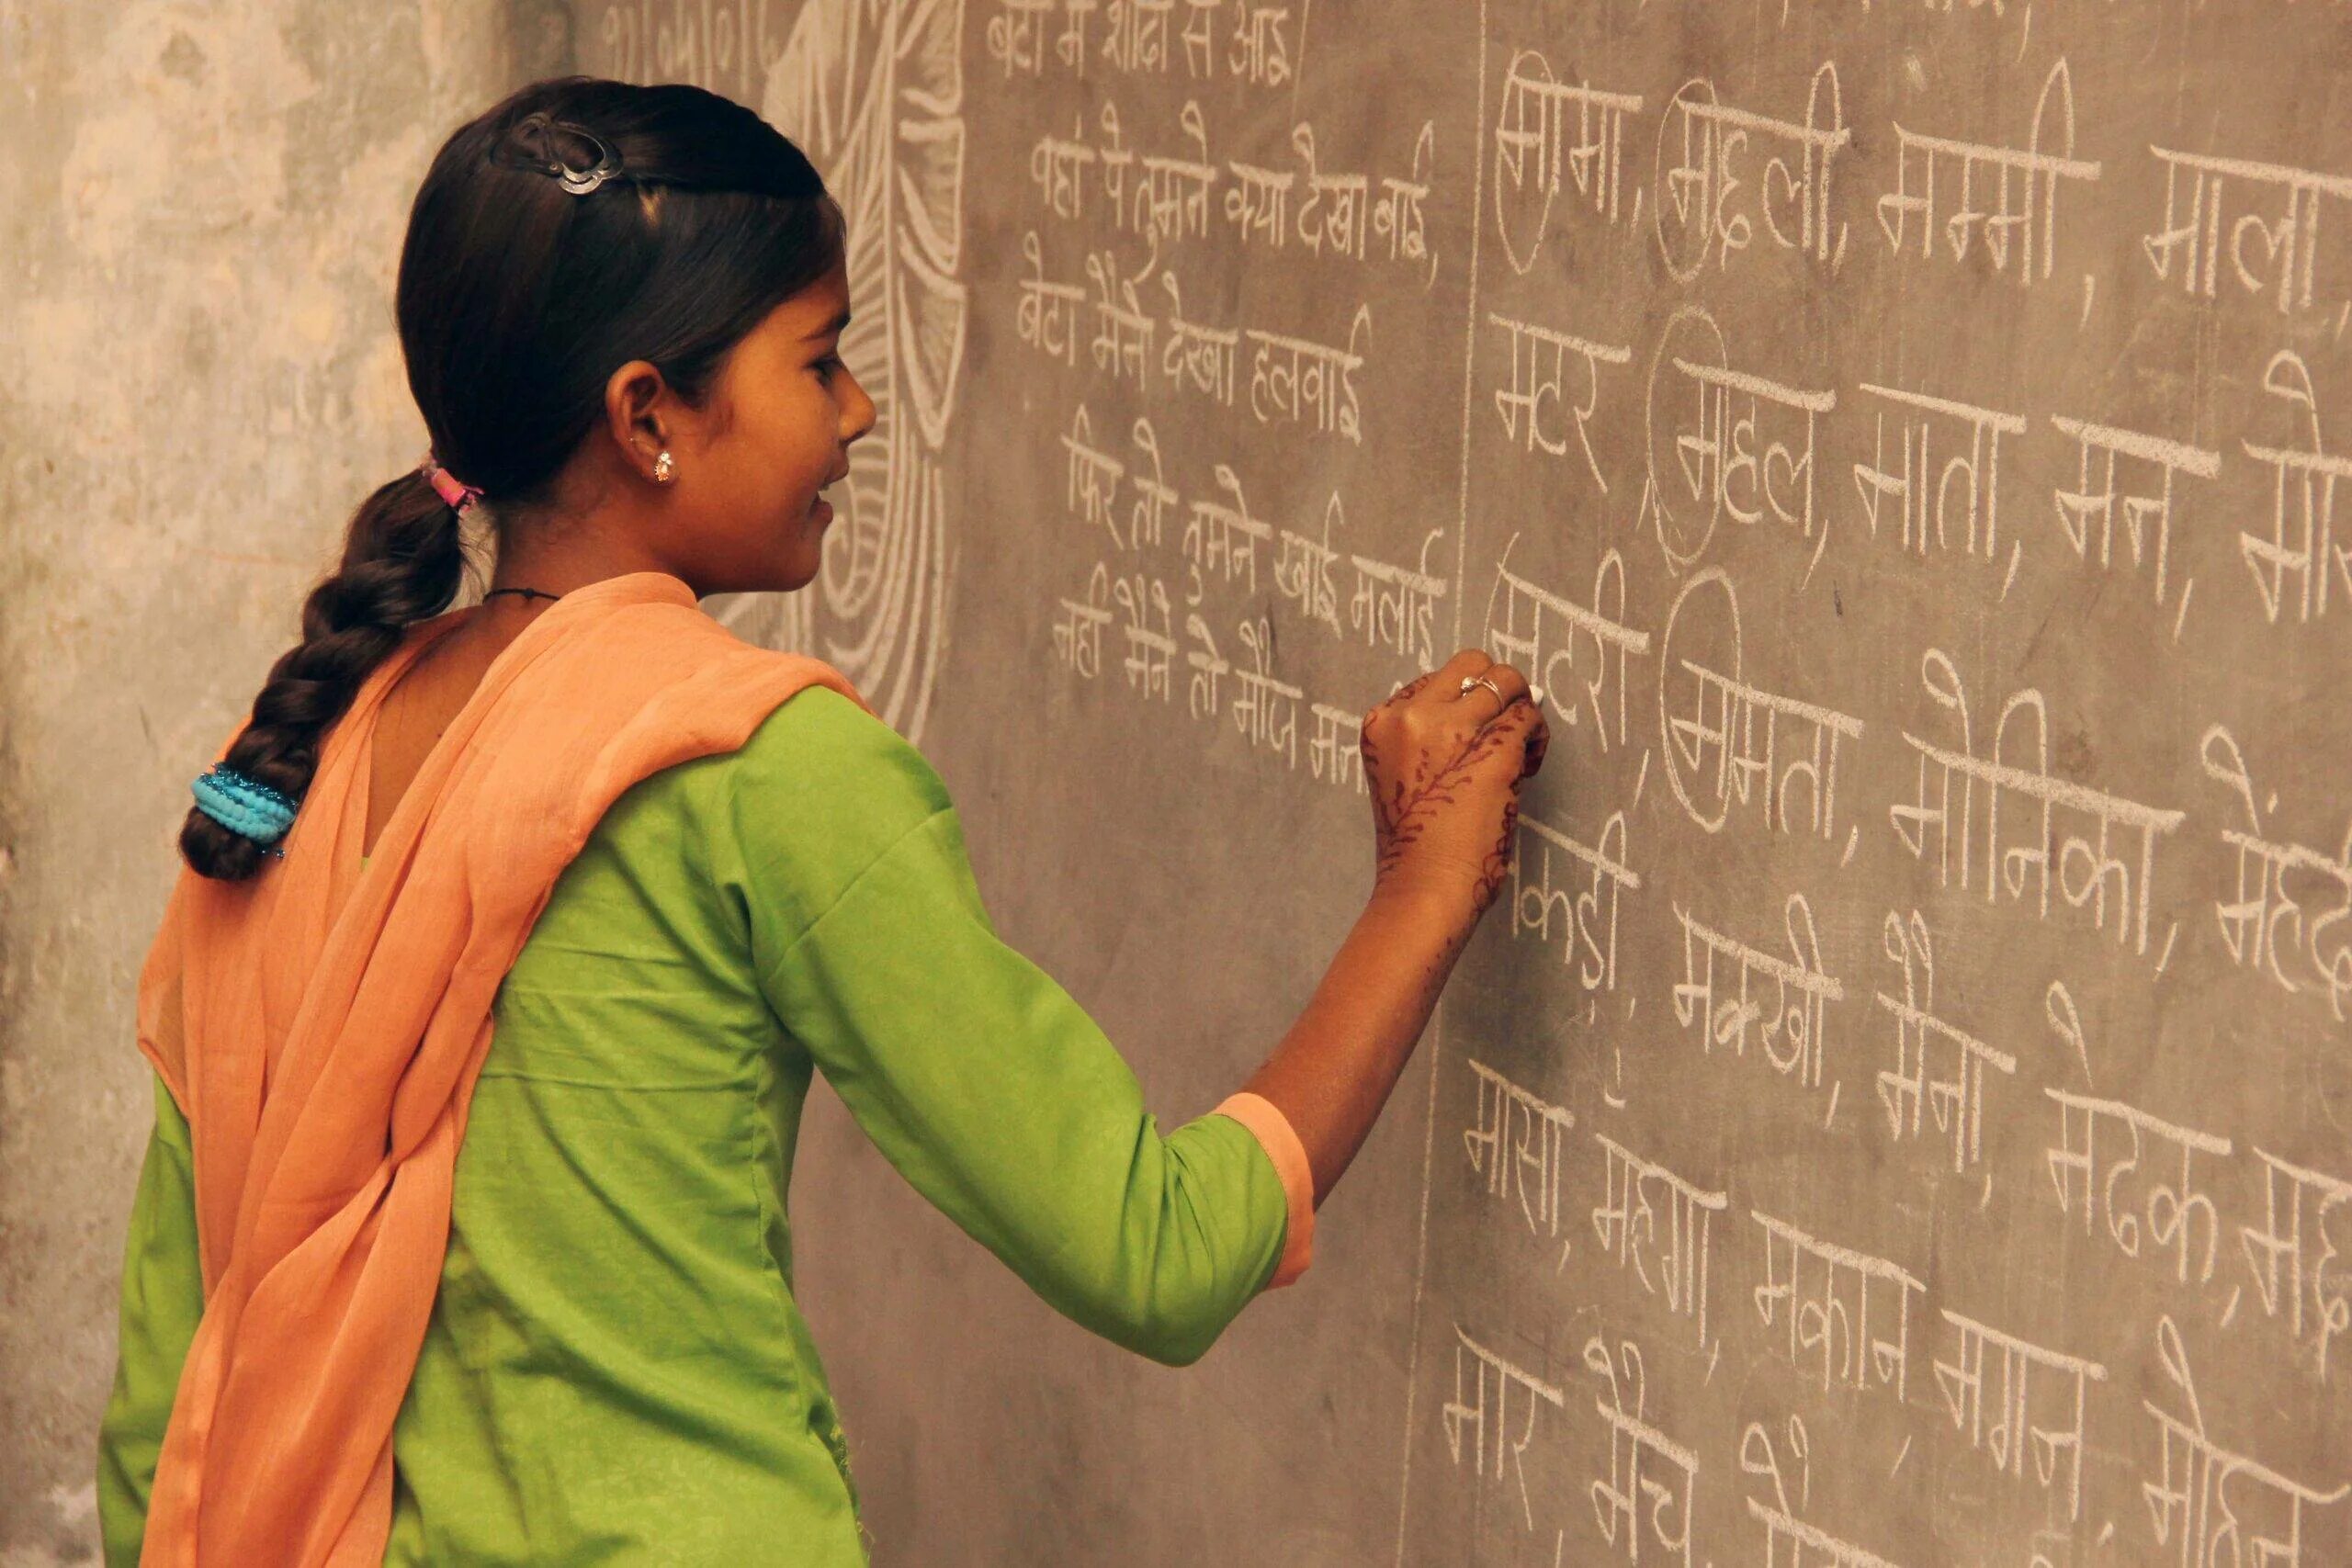 बेटा मैं शादी से आई
वहां पे तुमने क्या देखा बाई,
बेटा मैंने देखा हलवाई
फिर तो तुमने खाई मलाई
नहीं मैंने तो मौज
मामा, मछली, मम्मी, माला,
मटर, महल, माता, मन,
मटरी, ममता, मोनिका,
मक्खी, मैना, मेढक,
मासा, महंगा, मकान, मगन, मोहन
मार, मैच,